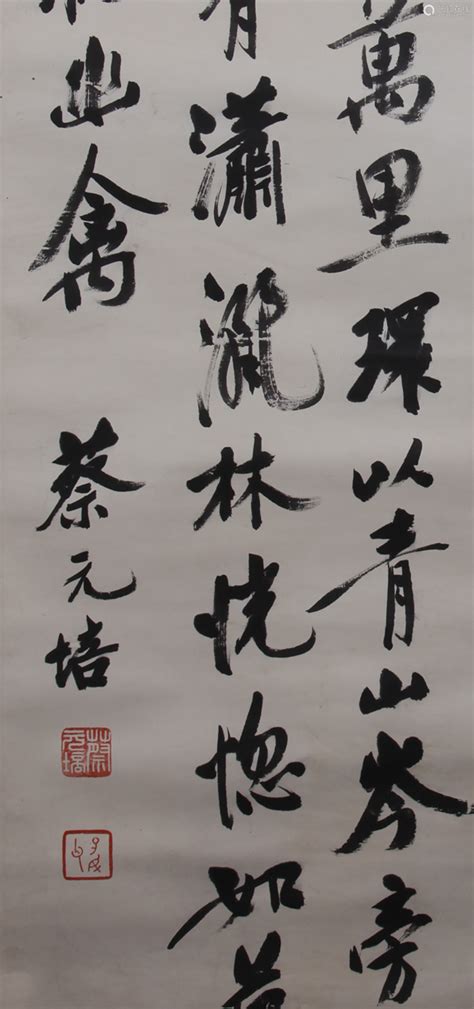 萬里環以青山岑旁
瀟灑林恍惚如
幽禽
蔡元培
蔡元培